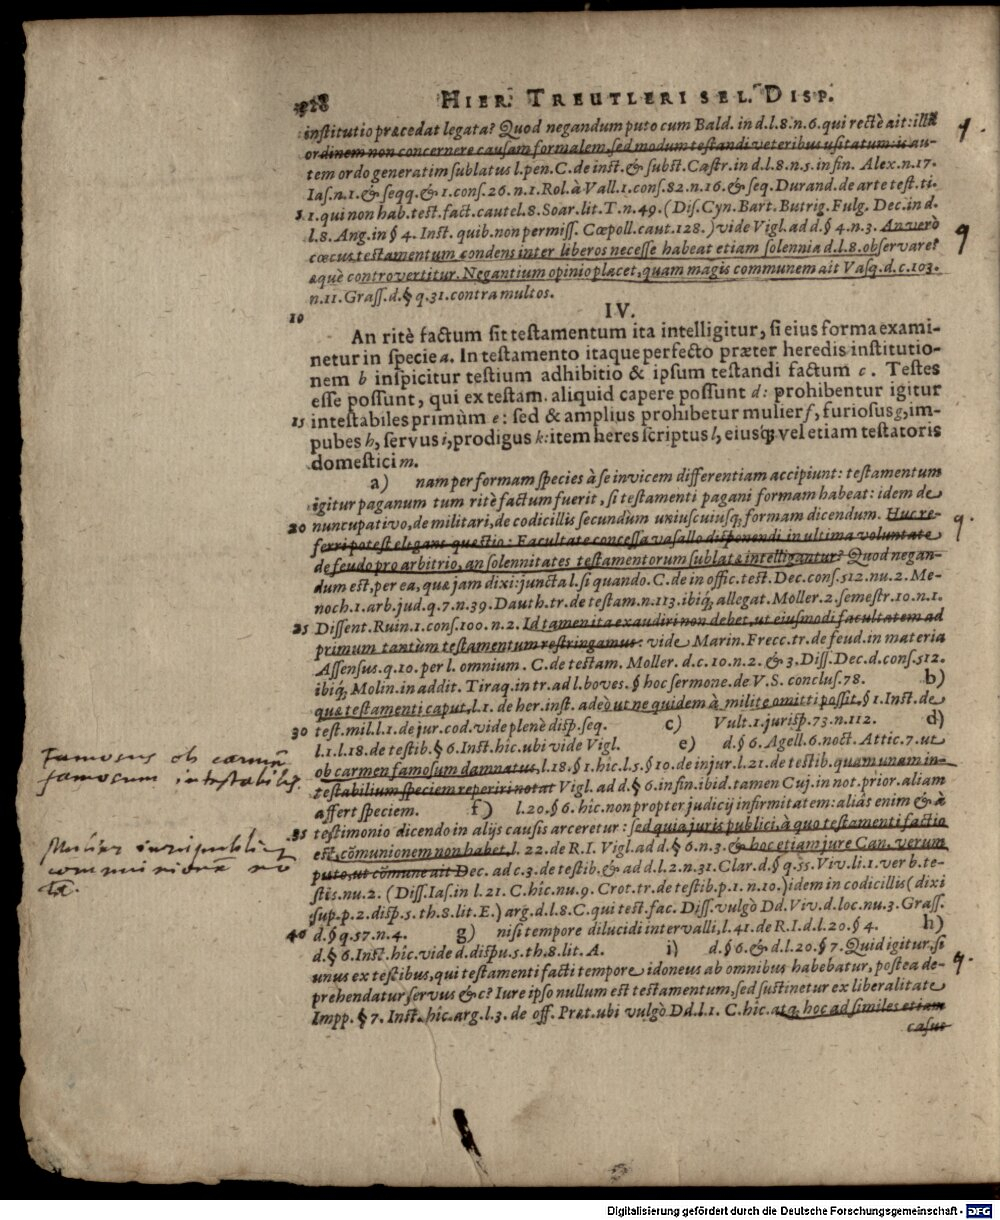 328 HIER. TREUTLERI SEL. DISP.
institutio præcedat legata? Quod negandum puto cum Bald. in d.l.8.n.6. qui rectè ait: illū
ordinem non concernere causam formalem, sed modum testandi veteribus usitatum: is au-
tem ordo generatim sublatus l.pen.C.de inst.& subst.Castr.in d.l.8.n.5.in fin. Alex.n.17.
Ias.n.1.& seqq.& 1.cons.26.n.1.Rol.à Vall.1.cons.82.n.16.& seq.Durand.de arte test.ti.
5 1.qui non hab.test.fact.cautel.8.Soar.lit.T.n.49.(Dis.Cyn.Bart.Butrig.Fulg.Dec.in d.
l.8.Ang.in § 4. Inst. quib.non permiss. Cœpoll.caut.128.) vide Vigl.ad d.§ 4.n.3. An verò
cœcus testamentum condens inter liberos necesse habeat etiam solennia d.l.8.observare?
æquè controvertitur. Negantium opinio placet, quam magis communem ait Vasq.d.c.103.
n.11.Grass.d.§ q.31.contra multos.
10 IV.
An ritè factum sit testamentum ita intelligitur, si eius forma exami-
netur in specie a. In testamento itaque perfecto præter heredis institutio-
nem b inspicitur testium adhibitio & ipsum testandi factum c. Testes
esse possunt, qui ex testam. aliquid capere possunt d: prohibentur igitur
15 intestabiles primùm e: sed & amplius prohibetur mulier f, furiosus g, im-
pubes h, servus i, prodigus k: item heres scriptus l, eiusq; vel etiam testatoris
domestici m.
a) nam per formam species à se invicem differentiam accipiunt: testamentum
igitur paganum tum ritè factum fuerit, si testamenti pagani formam habeat: idem de
20 nuncupativo, de militari, de codicillis secundum uniuscuiusq; formam dicendum. Huc re-
ferri potest elegans quæstio: Facultate concessa vasallo disponendi in ultima voluntate
de feudo pro arbitrio, an solennitates testamentorum sublatæ intelligantur? Quod negan-
dum est, per ea, quæ jam dixi: juncta l.si quando.C.de in offic.test.Dec.cons.512.nu.2.Me-
noch.1.arb.jud.q.7.n.39.Dauth.tr.de testam.n.113.ibiq́; allegat.Moller.2.semestr.10.n.1.
25 Dissent.Ruin.1.cons.100.n.2. Id tamen ita exaudiri non debet, ut eiusmodi facultatem ad
primum tantùm testamentum restringamus: vide Marin.Frecc.tr.de feud.in materia
Assensus.q.10.per l. omnium. C.de testam. Moller. d.c.10.n.2. & 3.Diss.Dec.d.cons.512.
ibiq́; Molin.in addit. Tiraq.in tr.ad l.boves.§ hoc sermone.de V.S. conclus.78. b)
quæ testamenti caput, l.1. de her.inst. adeò ut ne quidem à milite omitti possit, § 1.Inst.de
30 test.mil.l.1.de jur.cod.vide plenè disp.seq. c) Vult.1.jurisp.73.n.112. d)
l.1.l.18.de testib.§ 6.Inst.hîc.ubi vide Vigl. e) d.§ 6.Agell.6.noct. Attic.7.ut
ob carmen famosum damnatus, l.18.§ 1.hîc.l.5.§ 10.de injur.l.21.de testib.quam unam in-
testabilium speciem reperiri notat Vigl. ad d.§ 6.in fin.ibid.tamen Cuj.in not.prior.aliam
affert speciem. f) l.20.§ 6. hîc.non propter judicij infirmitatem: aliàs enim & à
35 testimonio dicendo in alijs causis arceretur: sed quia juris publici, à quo testamenti factio
est, cōmunionem non habet, l. 22.de R.I. Vigl.ad d.§ 6.n.3.& hoc etiam jure Can. verum
puto, ut cōmune ait Dec. ad c.3.de testib.& ad d.l.2.n.31. Clar.d.§ q.55.Viv.li.1.ver b.te-
stis.nu.2. (Diss.Ias.in l.21.C.hîc.nu.9. Crot.tr.de testib.p.1.n.10.) idem in codicillis (dixi
sup.p.2.disp.5.th.8.lit.E.) arg.d.l.8.C.qui test.fac. Diss.vulgò Dd.Viv.d.loc.nu.3.Grass.
40 d.§ q.57.n.4. g) nisi tempore dilucidi intervalli, l.41.de R.I.d.l.20.§ 4. h)
d.§ 6.Inst.hîc.vide d.dispu.5.th.8.lit.A. i) d.§ 6.& d.l.20.§ 7.Quid igitur, si
unus ex testibus, qui testamenti facti tempore idoneus ab omnibus habebatur, postea de-
prehendatur servus &c? Iure ipso nullum est testamentum, sed sustinetur ex liberalitate
Impp. § 7. Inst. hîc.arg.l.3. de off. Præt.ubi vulgò Dd.l.1. C.hîc. atq; hoc ad similes etiam
casus
Famosus ob carmen
famosum intestabilis.
Mulier iuris publici
communionem no
Digitalisierung gefördert durch die Deutsche Forschungsgemeinschaft - DFG